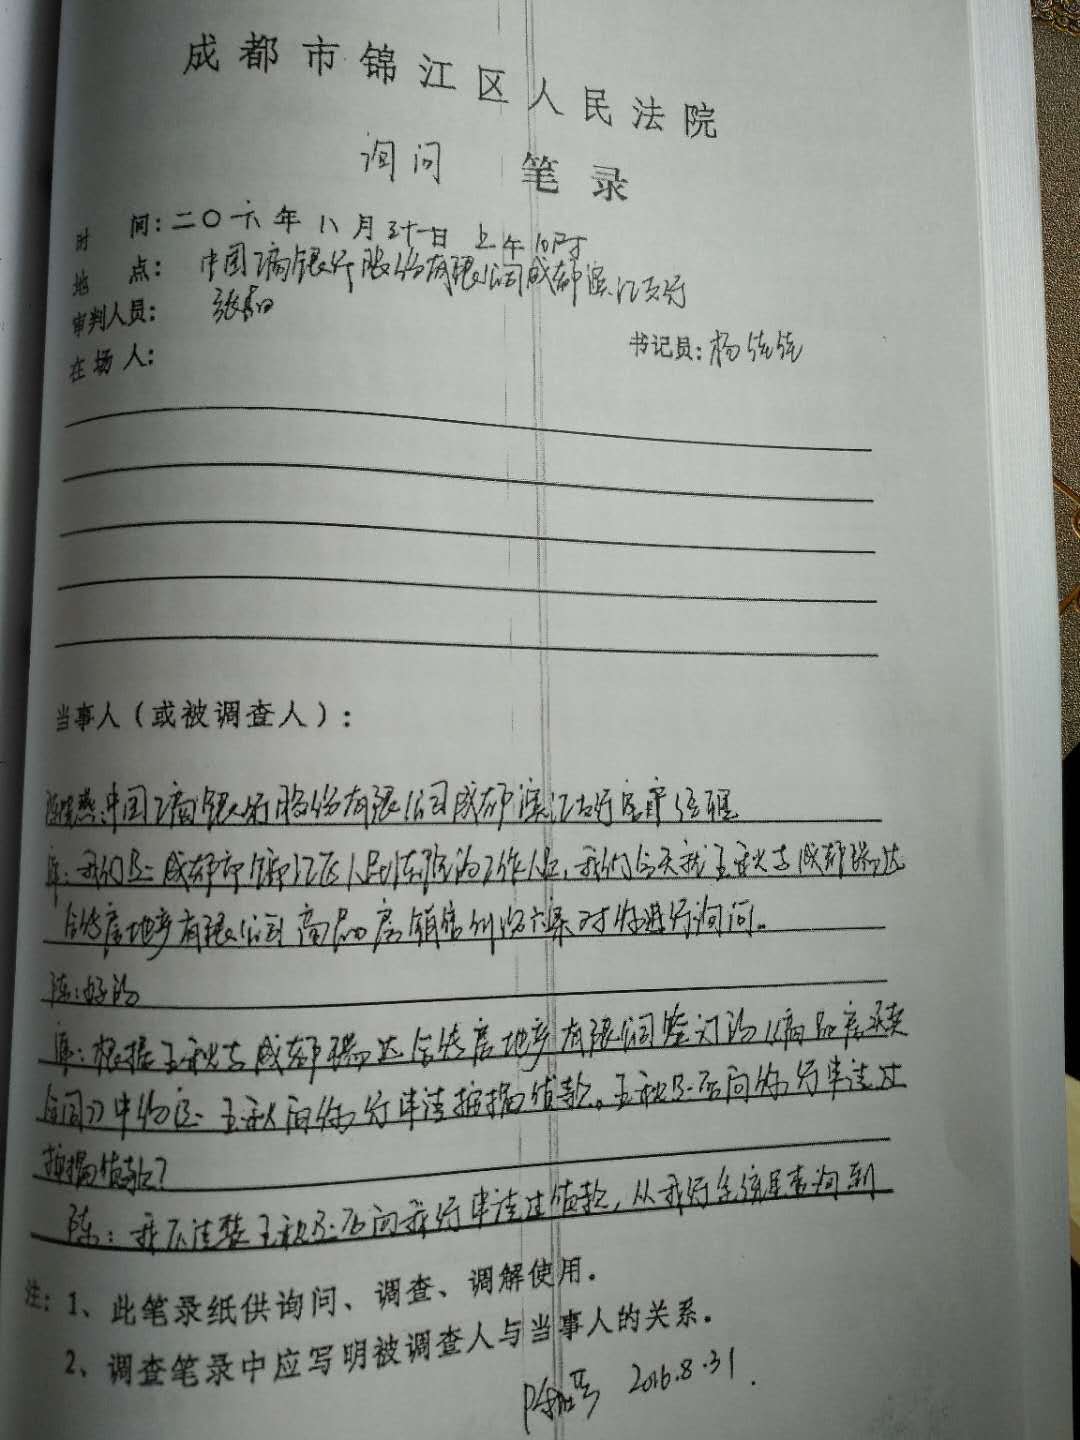 成都市锦江区人民法院
询问 笔录
时 间:二〇一六年 八月三十一日 上午10时
地 点: 中国工商银行股份有限公司成都滨江支行
审判人员: 张
书记员:杨
在场人:
当事人(或被调查人):
陈 燕:中国工商银行股份有限公司成都滨江支行 经理
审:我们是成都市锦江区人民法院的工作人员,我们今天就王秋与成都瑞达
房地产有限公司商品房销售纠纷六案对你进行询问。
陈:好的
审:根据王秋与成都瑞达 房地产有限公司签订的《商品房买卖
合同》中约定 王秋向你行申请按揭贷款。王秋是否向你行申请过
按揭贷款?
陈:我不清楚王秋是否向我行申请过贷款,从我行系统里查询到
注:1、此笔录纸供询问、调查、调解使用。
2、调查笔录中应写明被调查人与当事人的关系。
陈 2016.8.31.